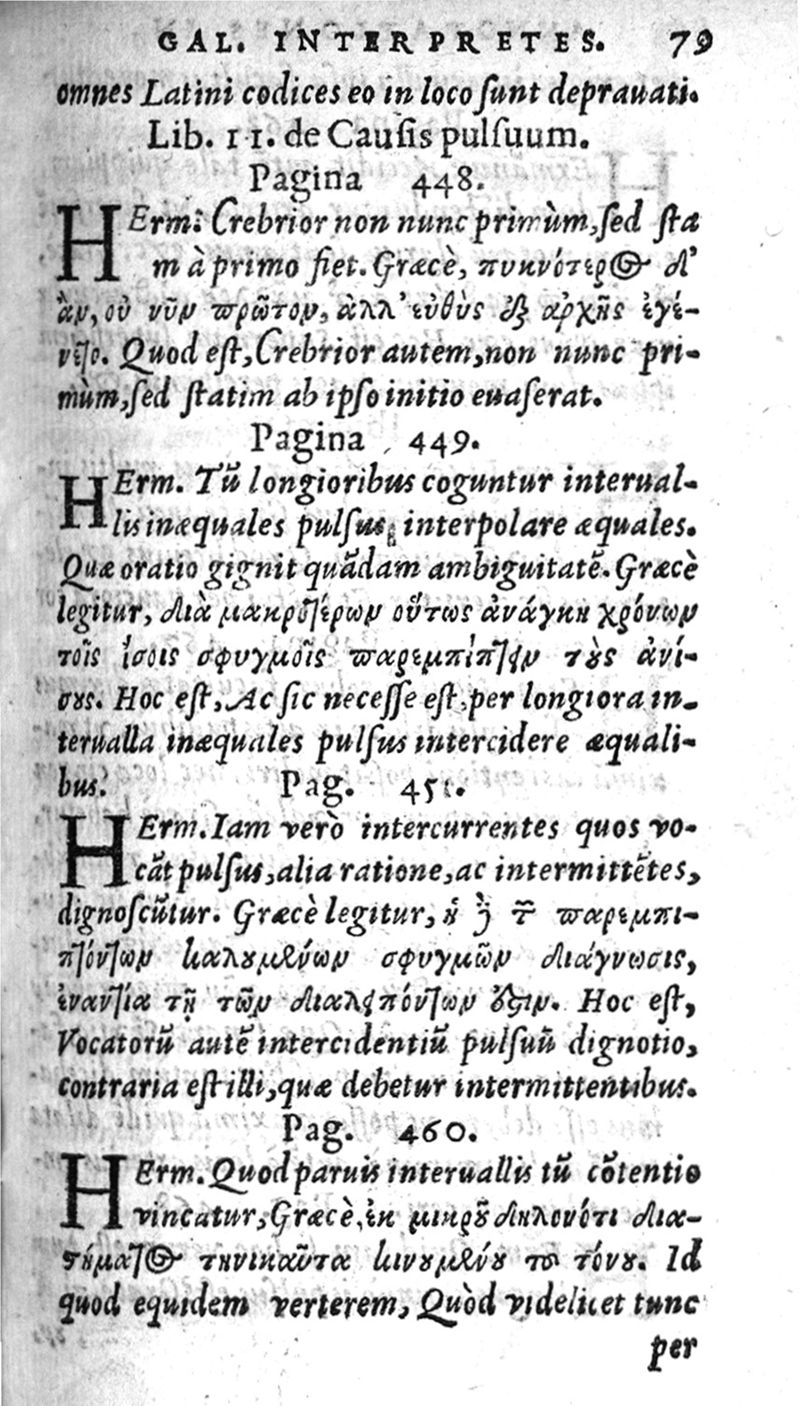 GAL. INTERPRETES. 79
omnes Latini codices eo in loco sunt deprauati.
Lib. 11. de Causis pulsuum.
Pagina 448.
HErm: Crebrior non nunc primùm, sed sta
m à primo fiet. Græcè, πυκνότερος δ'
ἂν, οὐ νῦν πρῶτον, ἀλλ' εὐθὺς ἐξ ἀρχῆς ἐγέ-
νετο. Quod est, Crebrior autem, non nunc pri-
mùm, sed statim ab ipso initio euaserat.
Pagina 449.
HErm. Tū longioribus coguntur interual-
lis inæquales pulsus interpolare æquales.
Quæ oratio gignit quādam ambiguitatē. Græcè
legitur, διὰ μακροτέρων οὕτως ἀνάγκη χρόνων
τοῖς ἴσοις σφυγμοῖς παρεμπίπτειν τοὺς ἀνί-
σους. Hoc est, Ac sic necesse est, per longiora in-
terualla inæquales pulsus intercidere æquali-
bus. Pag. 451.
HErm. Iam verò intercurrentes quos vo-
cāt pulsus, alia ratione, ac intermittētes,
dignoscūtur. Græcè legitur, ἡ δὲ τῶν παρεμπι-
πτόντων καλουμένων σφυγμῶν διάγνωσις,
ἐναντία τῇ τῶν διαλειπόντων ἐστιν. Hoc est,
Vocatorū autē intercidentiū pulsuū dignotio,
contraria est illi, quæ debetur intermittentibus.
Pag. 460.
HErm. Quod paruis interuallis tū cōtentio
vincatur, Græcè, ἐκ μικροῦ δηλονότι δια-
στήματος τηνικαῦτα κινουμένου τοῦ τόνου. Id
quod equidem verterem, Quòd videlicet tunc
per